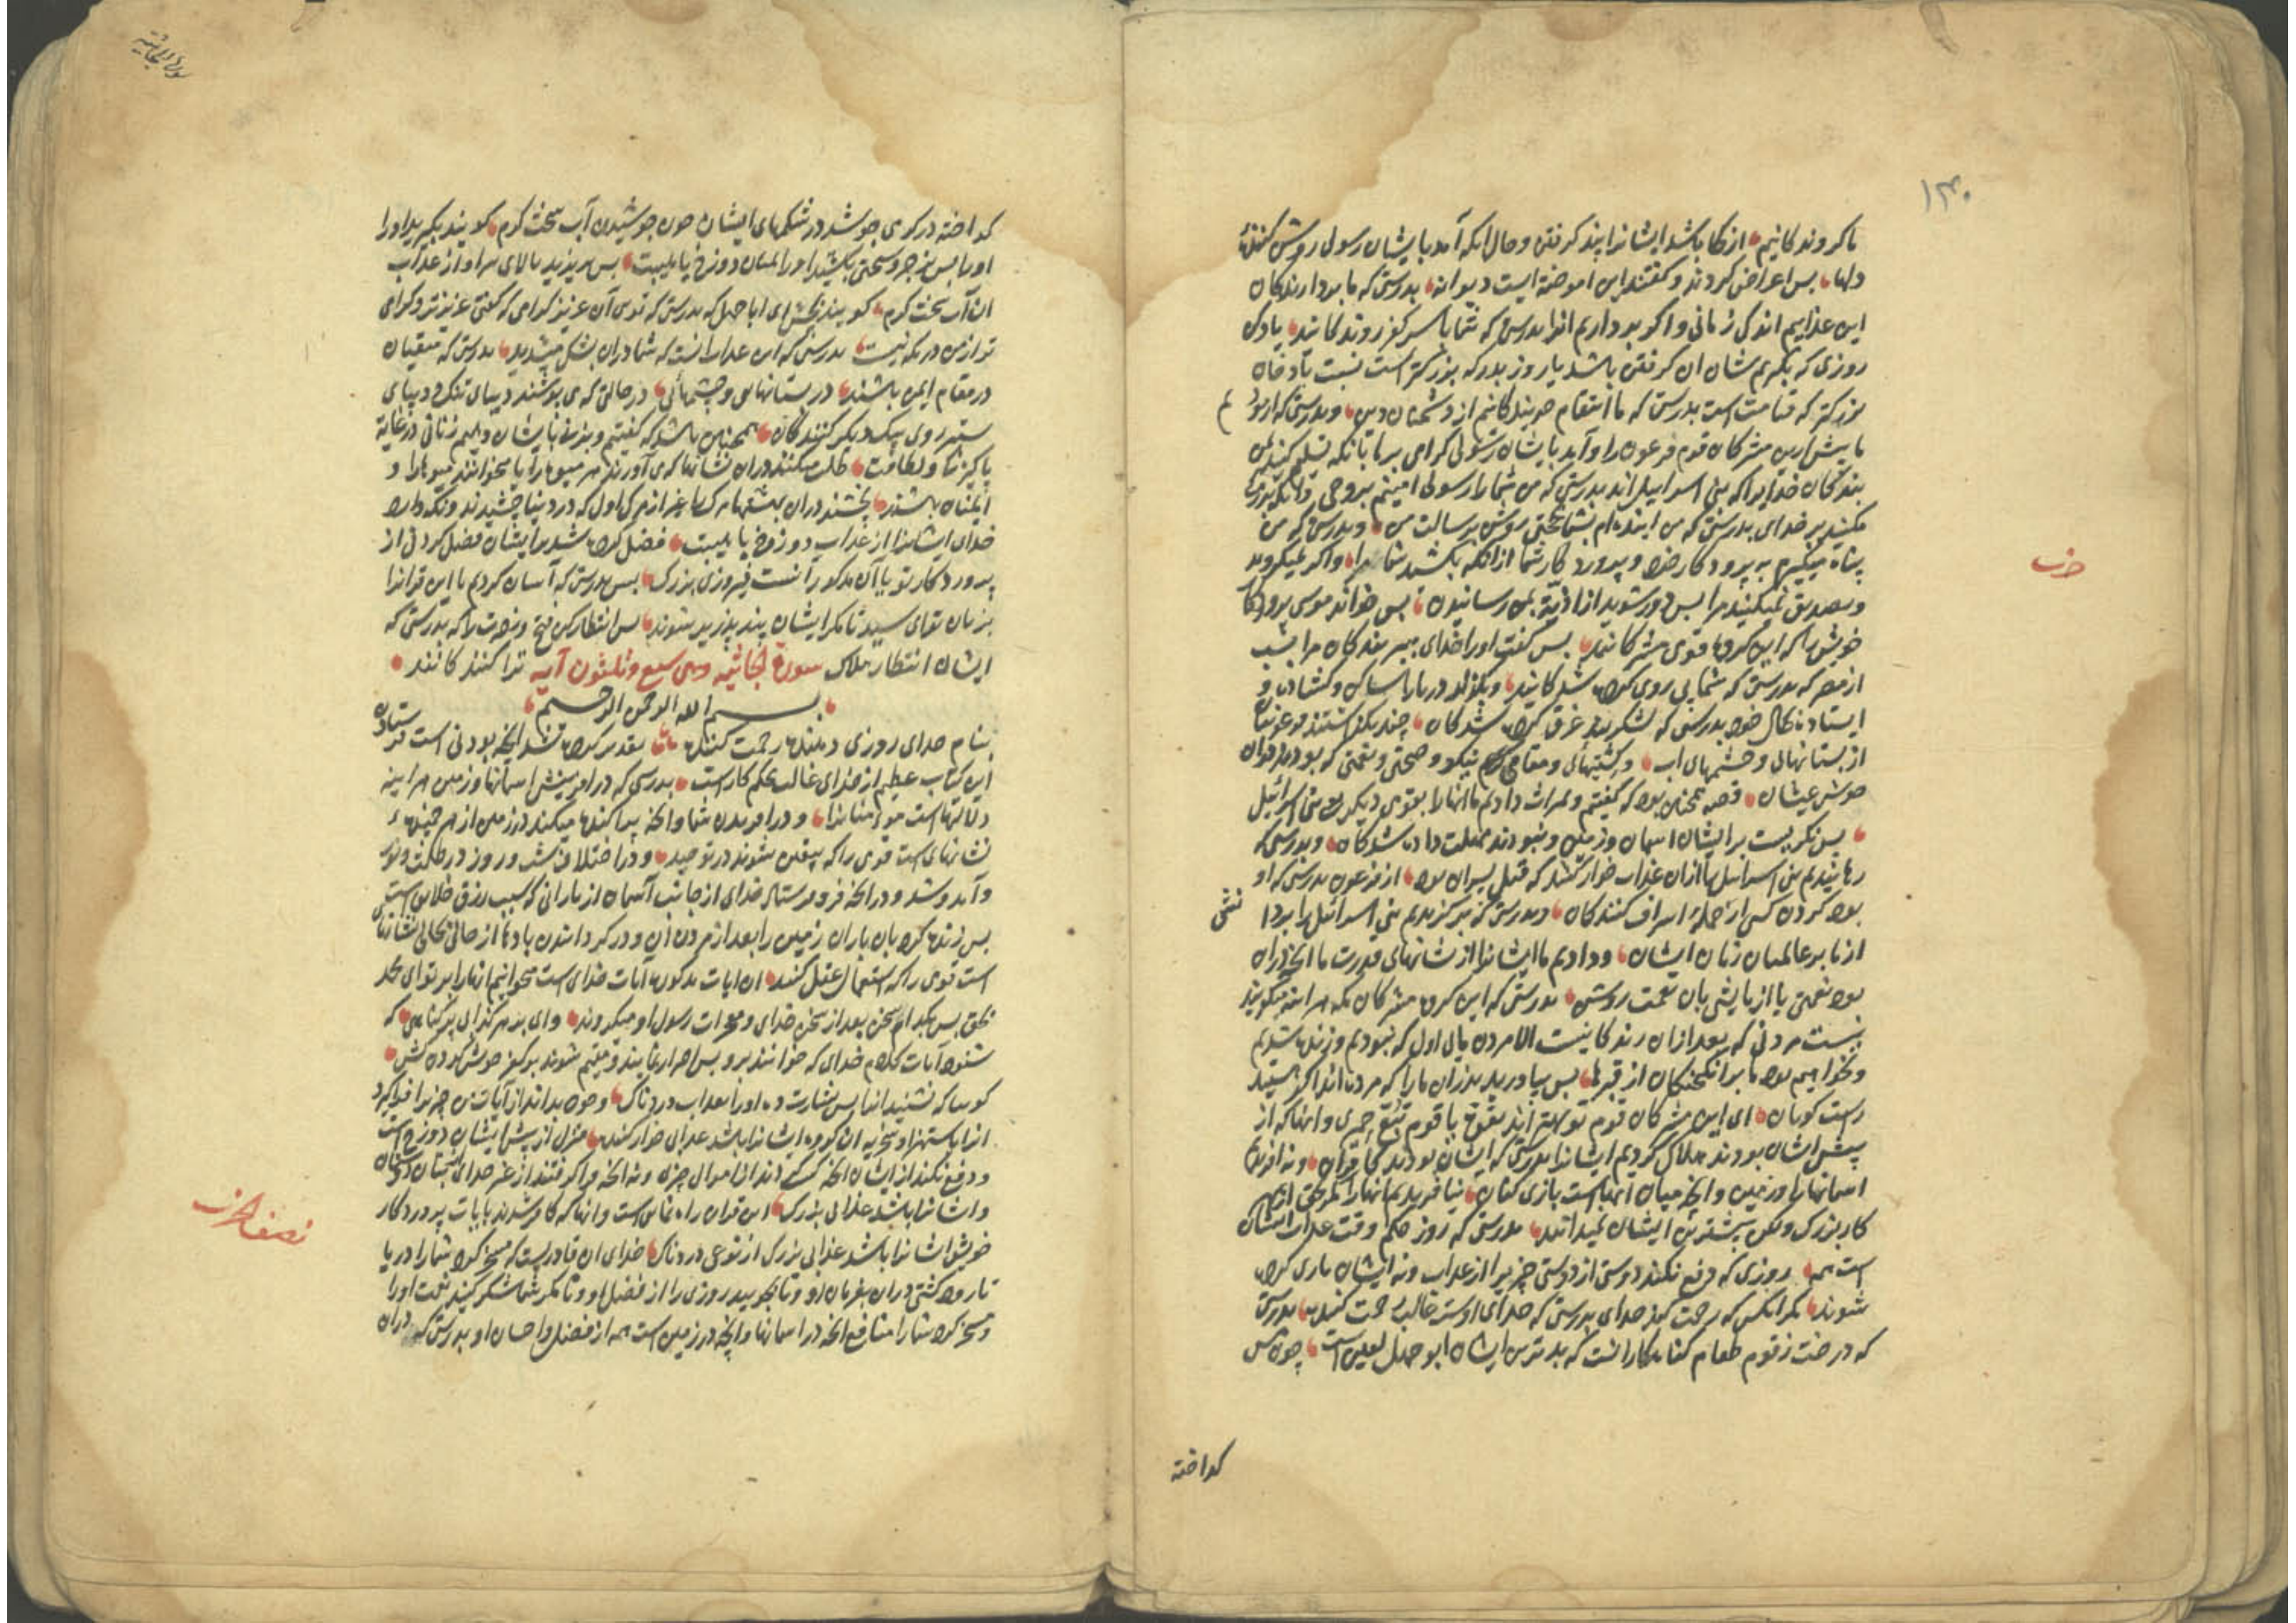 ۱۳۰
ما کروندکانیم از کجا باشد ایشانرا پند کرفتن و حال انکه آمد بایشان رسول روشن کننده
دلها بس اعراض کردند و کفتند این اموخته ایست دیوانه بدرستی که ما بردارندکان
این عذابیم اندکی زمانی و اکر برداریم انرا بدرستی که شما باسر کفر روندکانید یاد کن
روزی که بکیریم شان ان کرفتن باشد یا روز بدر که بزرکتر است نسبت
بزرکتر که قیامت است بدرستی که ما انتقام جویندکانیم از دشمنان دین و بدرستی که ازمود
ما پیش ازین مشرکان قوم فرعون را و آمد بایشان رسولی کرامی بر ما بانکه تسلیم کنید بمن
بندکان خدایرا که بنی اسراییل اند بدرستی که من شما را رسولی امینم بروحی و انکه بزرکی
مکنید بر خدای بدرستی که من اینده ام بشما بحجتی روشن برسالت من و بدرستی که من
پناه میکیرم به پروردکار خود و پروردکار شما از انکه بکشید شما مرا و اکر نمیکروید
و تصدیق نمیکنید مرا بس دور شوید از اذیة بمن رسانیدن بس خواند موسی پروردکار
خویش را که این کروه قومی مشرکانند بس کفت او را خدای ببر بندکان مرا بشب
از مصر که بدرستی که شما پی روی کرده شدکانید و بکذار دریا را ساکن و کشاده و
ایستاده بحال خود بدرستی که لشکریند غرق کرده شدکان چند بکذاشتند فرعونیان
از بستانهای و چشمهای اب و کشتهای و مقامی نیکو و صحتی و نعمتی که بودند دران
خوش عیشان قصه همچنین بود که کفتیم و میراث دادیم ما انها را بقومی دیکر یعنی بنی اسرائیل
بس نکریست بر ایشان اسمان و زمین و نبودند مهلت داده شدکان و بدرستی که
رهانیدیم بنی اسراییل را از ان عذاب خوار کننده که قتل پسران بود از فرعون بدرستی که او
بود کردن کش از جمله اسراف کنندکان و بدرستی که برکزیدیم بنی اسرائیل را بر
از ما بر عالمیان زمان ایشان و دادیم ما ایشانرا از نشانهای قدرت ما انچه دران
بود نعمتی یا ازمایشی بان نعمت روشن بدرستی که این کروه مشرکان مکه هر اینه میکویند
نیست مردنی که بعد ازان زندکانیست الا مردن ما اول که نبودیم و زنده شدیم
و نخواهیم بود ما برانکیختکان از قبرها بس بیاورید پدران ما را که مرده اند اکر هستید
راست کویان ای این مشرکان قوم تو بهتر اند بقوة یا قوم تبع حمیری و انها که از
پیش ایشان بودند هلاک کردیم ایشانرا بدرستی که ایشان بودند کافران و نه افریدیم
اسمانها را و زمین و انچه میان انهاست بازی کنان نیافریدیم انها را الا بحق از بهر
کار بزرک ولکن بیشترین ایشان نمیدانند بدرستی که روز حکم وقت عذاب ایشان
است همه روزی که دفع نکند دوستی از دوستی چیزیرا از عذاب و نه ایشان یاری کرده
شوند مکر انکس که رحمت کند خدای بدرستی که خدای اوست غالب رحمت کننده بدرستی
که درخت زقوم طعام کناهکارانست که بدترین ایشان ابو جهل لعین است چون مس
کداخته
حزب
سورة الجاثیة
کداخته در کرمی جوشد در شکمهای ایشان چون جوشیدن آب سخت کرم کویند بکیرید او را
او را بس بزجر و سختی بکشید او را بمیان دوزخ یا پلیبت بس بریزید بالای سر او از عذاب
ان آب سخت کرم کویند بچش ای ابا جهل که بدرستی که توی آن عزیز کرامی که کفتی عزیزتر و کرامی
تر از من در مکه نیست بدرستی که این عذاب انست که شما دران بشک میشدید بدرستی که متقیان
در مقام ایمن باشند در بستانهای و چشمهائی در حالتی که می پوشند دیبای تنک و دیبای
ستبر روی بیک دیکر کنندکان همچنین باشد که کفتیم و بزنی بایشان دهیم زنانی در غایة
پاکیزکی و لطافت طلب میکنند دران نشانها که می آورند هر میوها را یا میخوانند میوها را و
ایمنان باشند نچشند دران بهشتها مرک را بغیر از مرک اول که در دنیا چشیدند و نکه دارد
خدای ایشانرا از عذاب دوزخ یا پلیبت فضل کرده شد برایشان فضل کردنی از
پرورد کار تو یا آن مذکور انست فیروزی بزرک بس بدرستی که آسان کردیم ما این قرانرا
بزبان تو ای سید تا مکر ایشان پند پذیر شوند بس انتظار کن فتح و نصرت را که بدرستی که
ایشان انتظار هلاک سورة الجاثیه وهی سبع وثلثون آیه ترا کنندکانند
بسم الله الرحمن الرحیم
بنام خدای روزی دهنده رحمت کننده تقدیر کرده شد انچه بودنی است فرستادن
این کتاب عظیم از خدای غالب محکم کار است بدرستی که در افرینش اسمانها و زمین هر اینه
دلالتهاست مر مؤمنانرا و در افریدن شما و انچه پراکنده میکند در زمین از هر جنبنده
نشانهای است قومی را که بیقین شوند در توحید و در اختلاف شب و روز در ظلمت و نور
و آمد و شد و در انچه فرو فرستاد خدای از جانب آسمان از بارانی که سبب رزق خلایق است
بس زنده کرد بان باران زمین را بعد از مردن ان و در کردانیدن بادها از حالی بحالی نشانهای
است قومی را که استعمال عقل کنند ان ایات مذکور ایات خدای است میخوانیم انها را بر تو ای محمد
بحق بس بکدام سخن بعد از سخن خدای و معجزات رسول او میکروند وای بر هر کذابی پر کناهی که
شنود آیات کلام خدای که خوانند برو بس اصرار نمایند و مقیم شوند بر کفر خویش کردن کش
کویا که نشنید انرا بس بشارت ده او را بعذاب دردناک و چون بداند از آیات من چیزیرا فراکیرد
انرا باستهزا و سخریه ان کروه ایشانرا باشد عذابی خوار کننده منزل از پیش ایشان دوزخ است
و دفع نکند از ایشان انچه کسب کرده اند از اموال چیزی و نه انچه فرا کرفتند از غیر خدای دوستان
و ایشانرا باشد عذابی بزرک این قران راه نماینده است و انها که کافر شدند بایات پروردکار
خویش ایشانرا باشد عذابی بزرک از نوعی دردناک خدای ان قادریست که مسخر کرد شما را دریا
تا رود کشتی دران بفرمان او و تا بجویید روزی را از فضل او و تا مکر شما شکر کنید نعمت او را
و مسخر کرد شما را منافع انچه در اسمانها و انچه در زمین است همه از فضل و احسان او بدرستی که دران
نصف الحزب